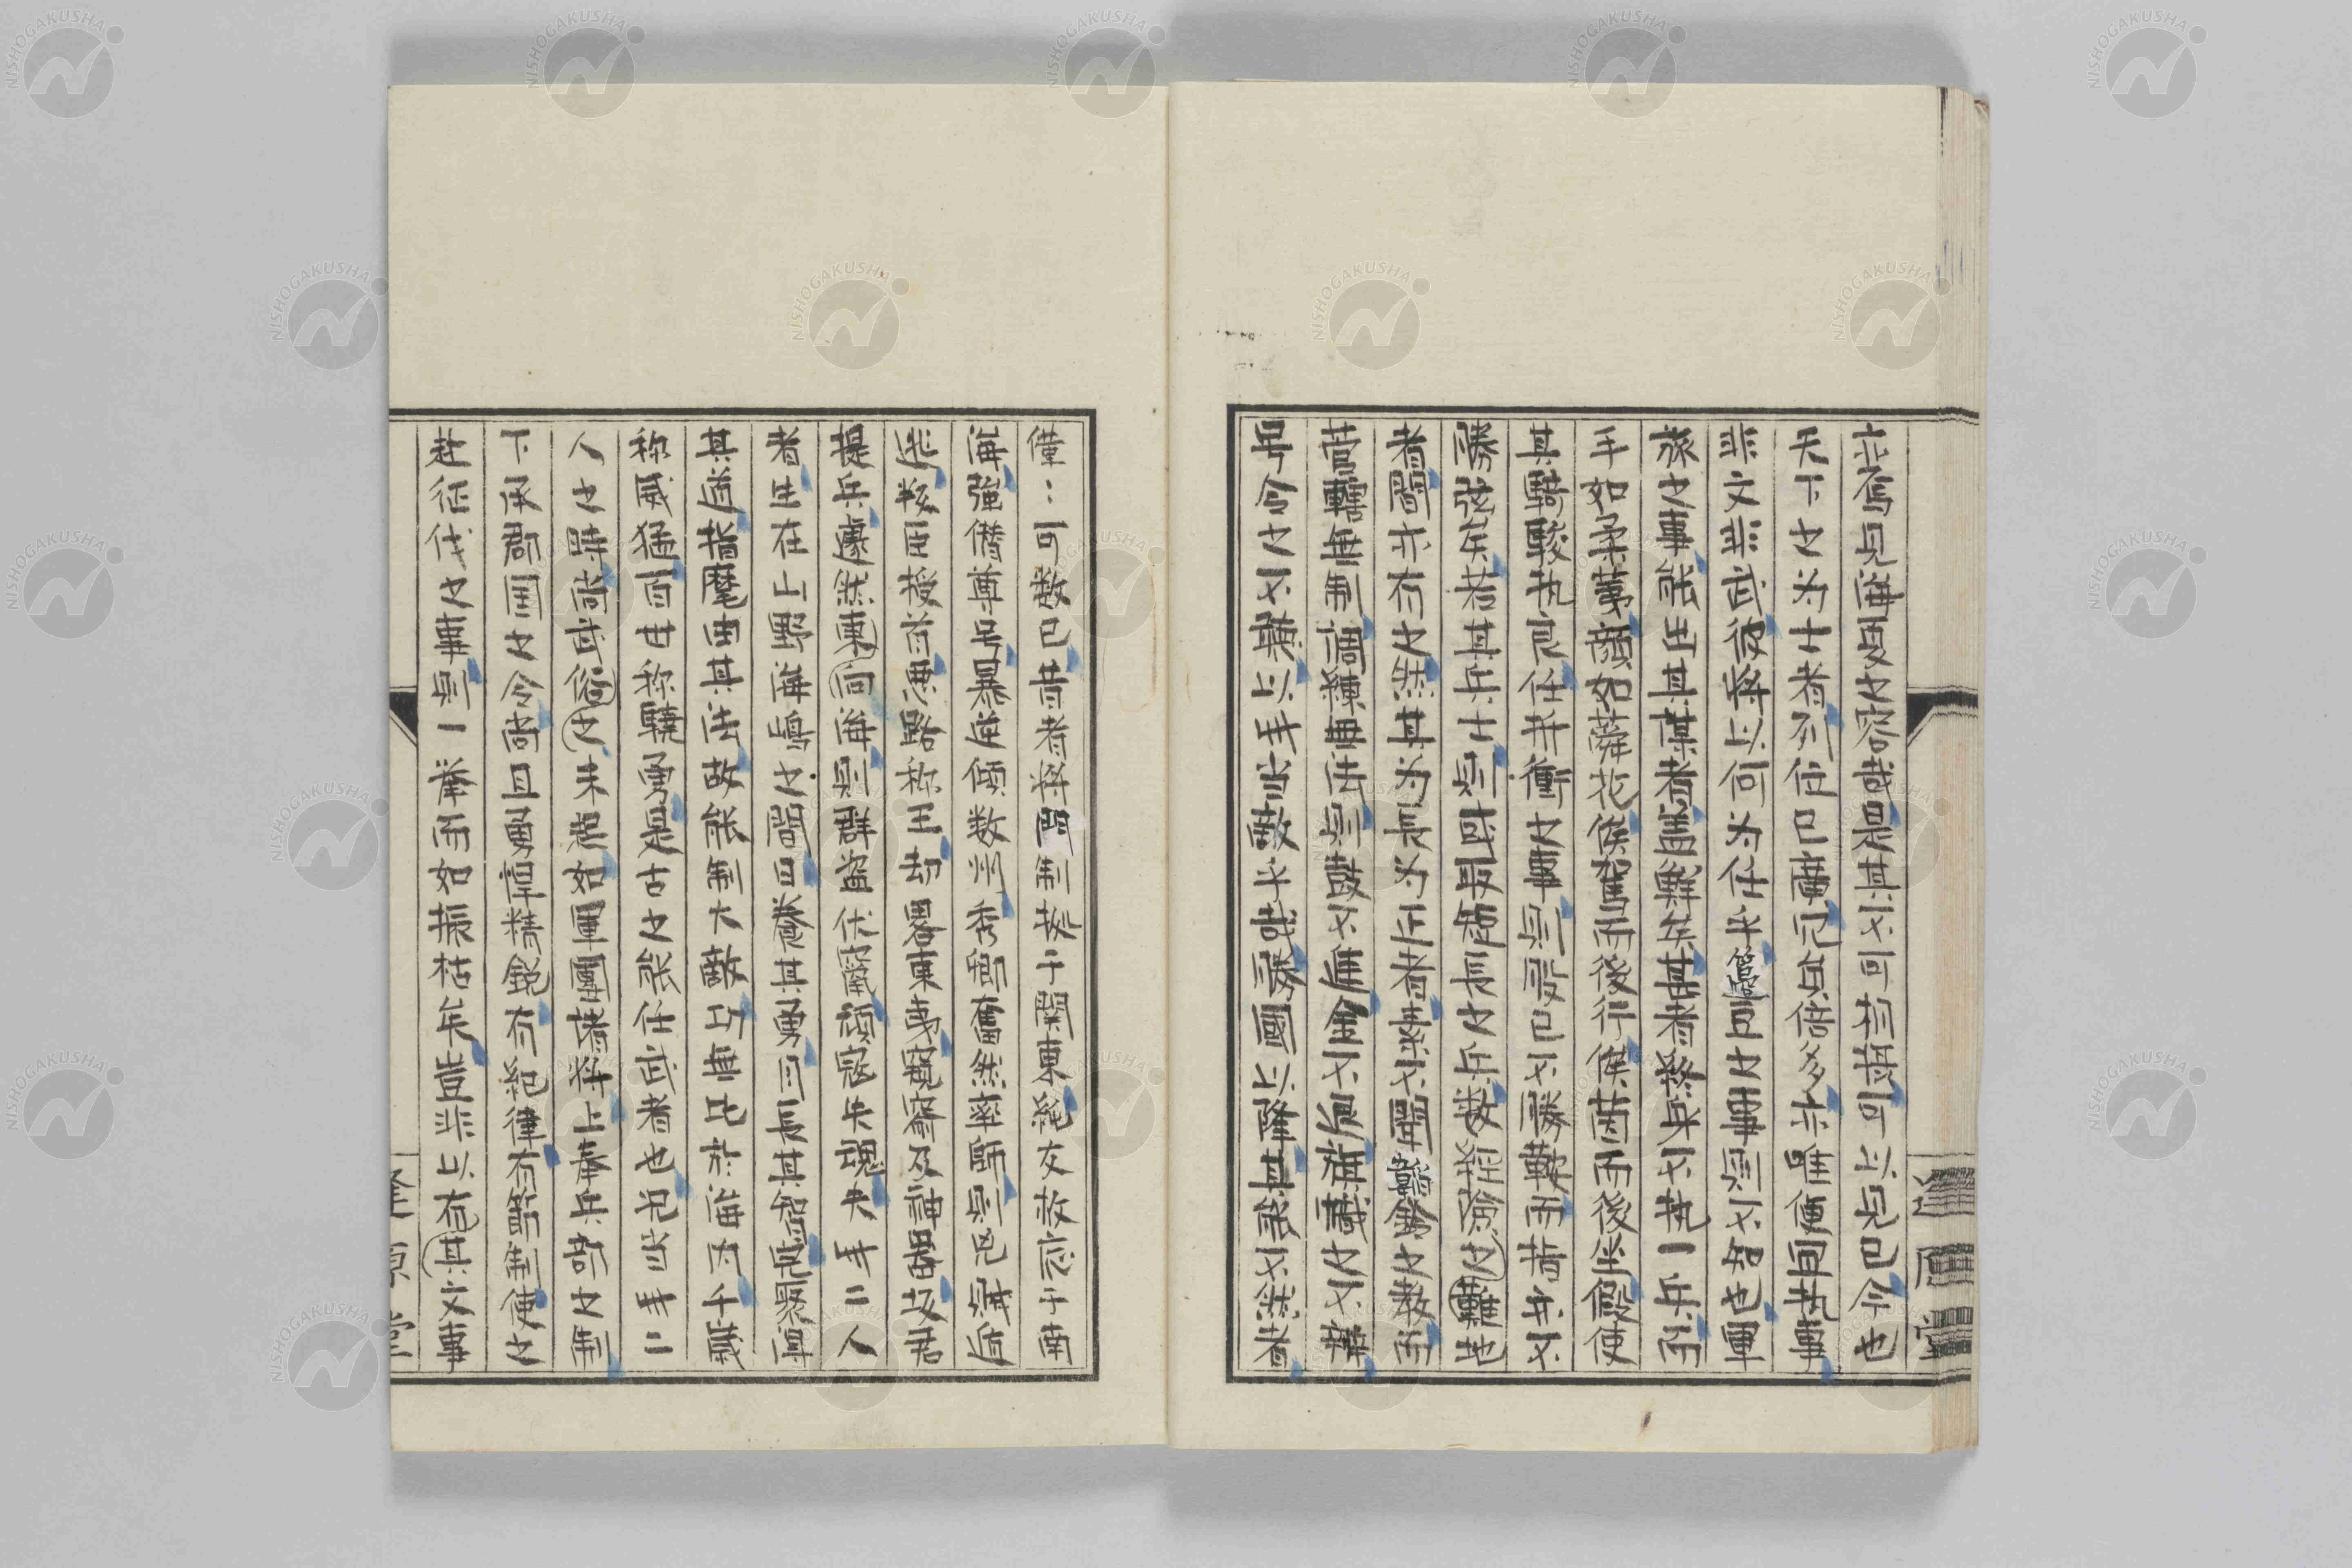 亦寫見海夏之容哉是其不可相悖可以見已今也
天下之为士者列位已廣冗其倍多亦唯便宜执事
非文非武彼將以何为任乎簪豆之事則不知也軍
旅之事能出其謀者盖鮮矣甚者終身不执一兵而
手如柔荑顔如蕣花俟駕而後行俟茵而後坐假使
其騎駿执良任折衝之事則股已不勝鞍而指亦不
勝弦矣若其兵士則或取短長之兵数経險之難地
者間亦有之然其为長为正者業不閑韜鈐之教而
菅轄無制調練無法則鼓不進金不退旗幟之不辨
兵令之不諜以年当敵乎哉勝國以降其能不然者
僅々可数已昔者將門制挨于関東純友放恣于南
海強僭尊号暴逆傾数州秀卿奮然率師則凶賊遁
逃教臣授首恵路称王劫畧東夷窺窬及神器坂君
提兵遽然東向海則群盗伏竄頑寇失魂夫年二人
者生在山野海嶋之間日養其勇月長其智完聚得
其道指麾由其法故能制大敵功無比於海内千歳
称威猛百世称驍勇是古之能任武者也况当年二
人之時尚武俗之未起如軍團諸將上奉兵部之制
下承郡国之令尚且勇悍精鋭有紀律有節制使之
赴征伐之事則一举而如振枯矣豈非以有其文事